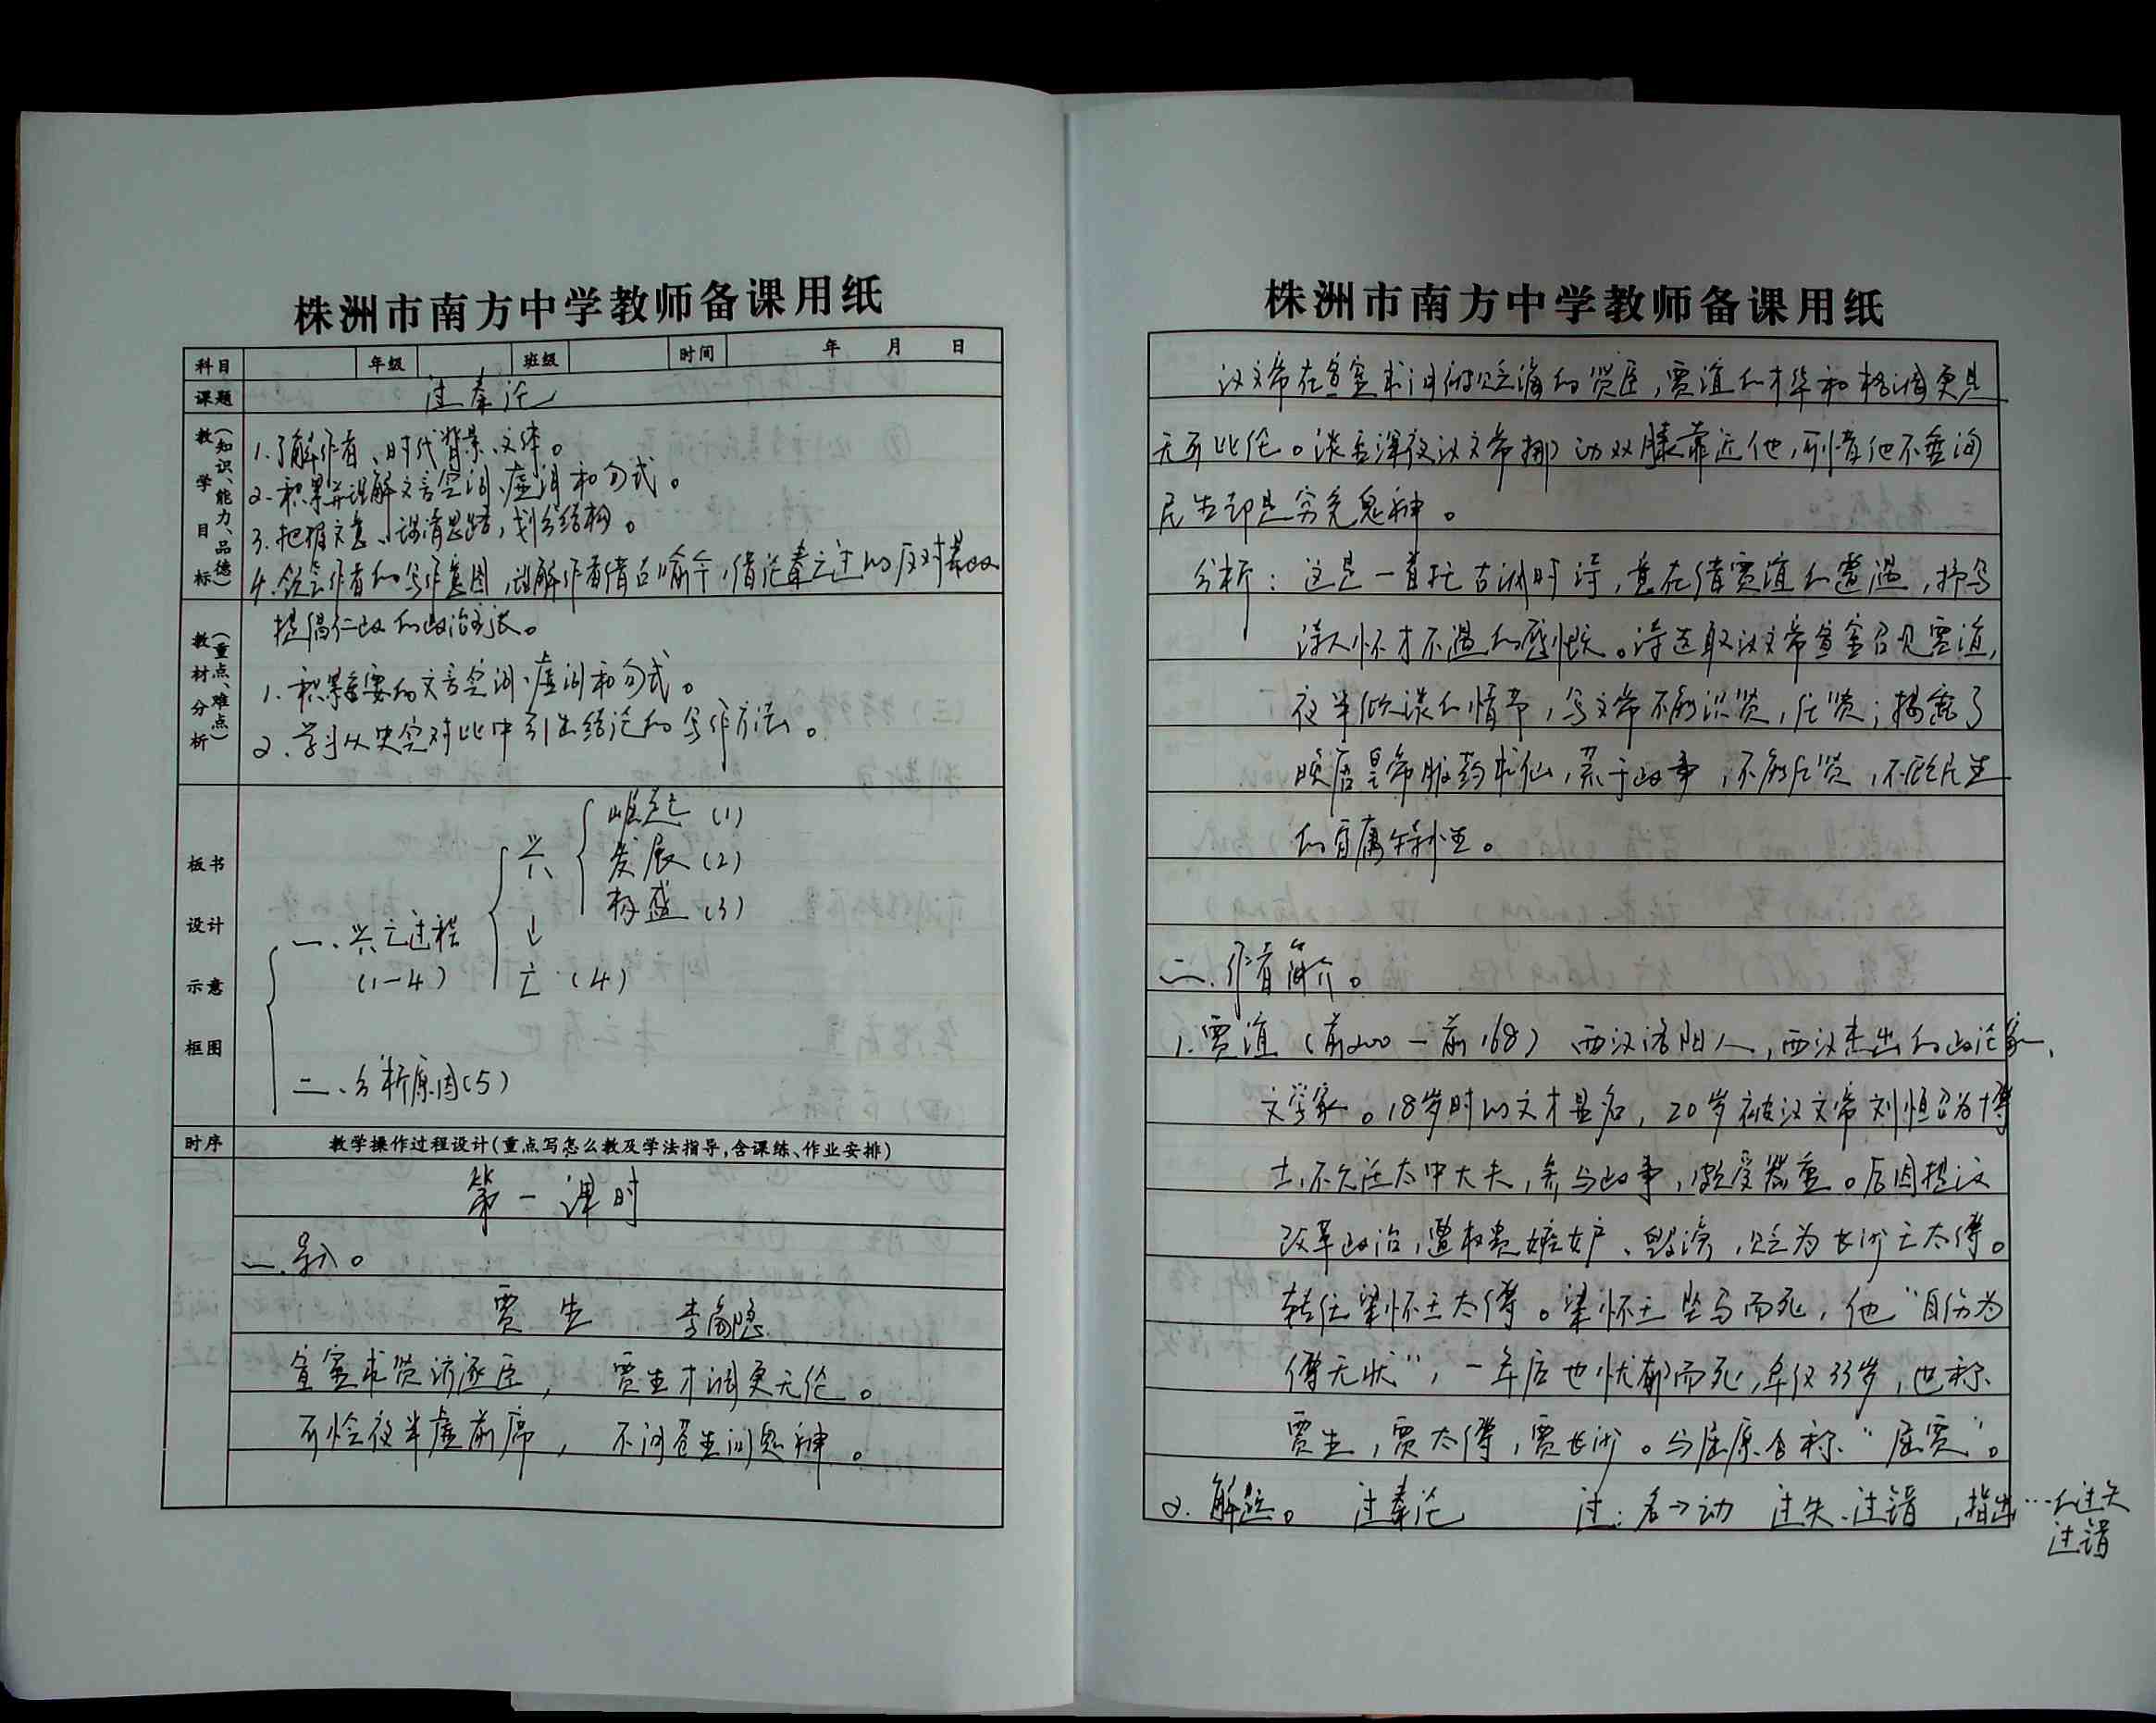 株洲市南方中学教师备课用纸
科目 年级 班级 时间 年 月 日
课题 过秦论
教学目标(知识、能力、品德)
1.了解作者、时代背景、文体。
2.积累并理解文言实词、虚词和句式。
3.把握文意、读清思路,划分结构。
4.领会作者的写作意图,理解作者借古喻今,借论秦之过的反对暴政
提倡仁政的政治主张。
教材分析(重点、难点)
1.积累重要的文言实词、虚词和句式。
2.学习从史实对比中引出结论的写作方法。
板书设计示意框图
兴
崛起(1)
发展(2)
极盛(3)
↓
亡(4)
一、兴亡过程
(1-4)
二、分析原因(5)
时序 教学操作过程设计(重点写怎么教及学法指导,含课练、作业安排)
第一课时
一.导入。
贾生 李商隐
宣室求贤访逐臣, 贾生才调更无伦。
可怜夜半虚前席, 不问苍生问鬼神。
株洲市南方中学教师备课用纸
汉文帝在宣室求问被贬谪的贤臣,贾谊的才华和格调更是
无可比伦。谈至深夜汉文帝挪动双膝靠近他,可惜他不垂询
民生却是穷究鬼神。
分析:这是一首托古讽时诗,意在借贾谊的遭遇,抒写
诗人怀才不遇的感慨。诗选取汉文帝宣室召见贾谊,
夜半倾谈的情节,写文帝不能识贤,任贤;揭露了
晚唐皇帝服药求仙,荒于政事,不能任贤,不顾民生
的昏庸特性。
二.作者简介。
1.贾谊(前200-前168) 西汉洛阳人,西汉杰出的政论家、
文学家。18岁时以文才显名,20岁被汉文帝刘恒召为博
士,不久迁太中大夫,参与政事,颇受器重。后因提议
改革政治,遭权贵嫉妒、毁谤,贬为长沙王太傅。
转任梁怀王太傅。梁怀王坠马而死,他“自伤为
傅无状”,一年后也忧郁而死,年仅33岁,也称
贾生,贾太傅,贾长沙。与屈原合称“屈贾”。
2.解题。 过秦论 过:名→动 过失、过错,指出…的过失
过错